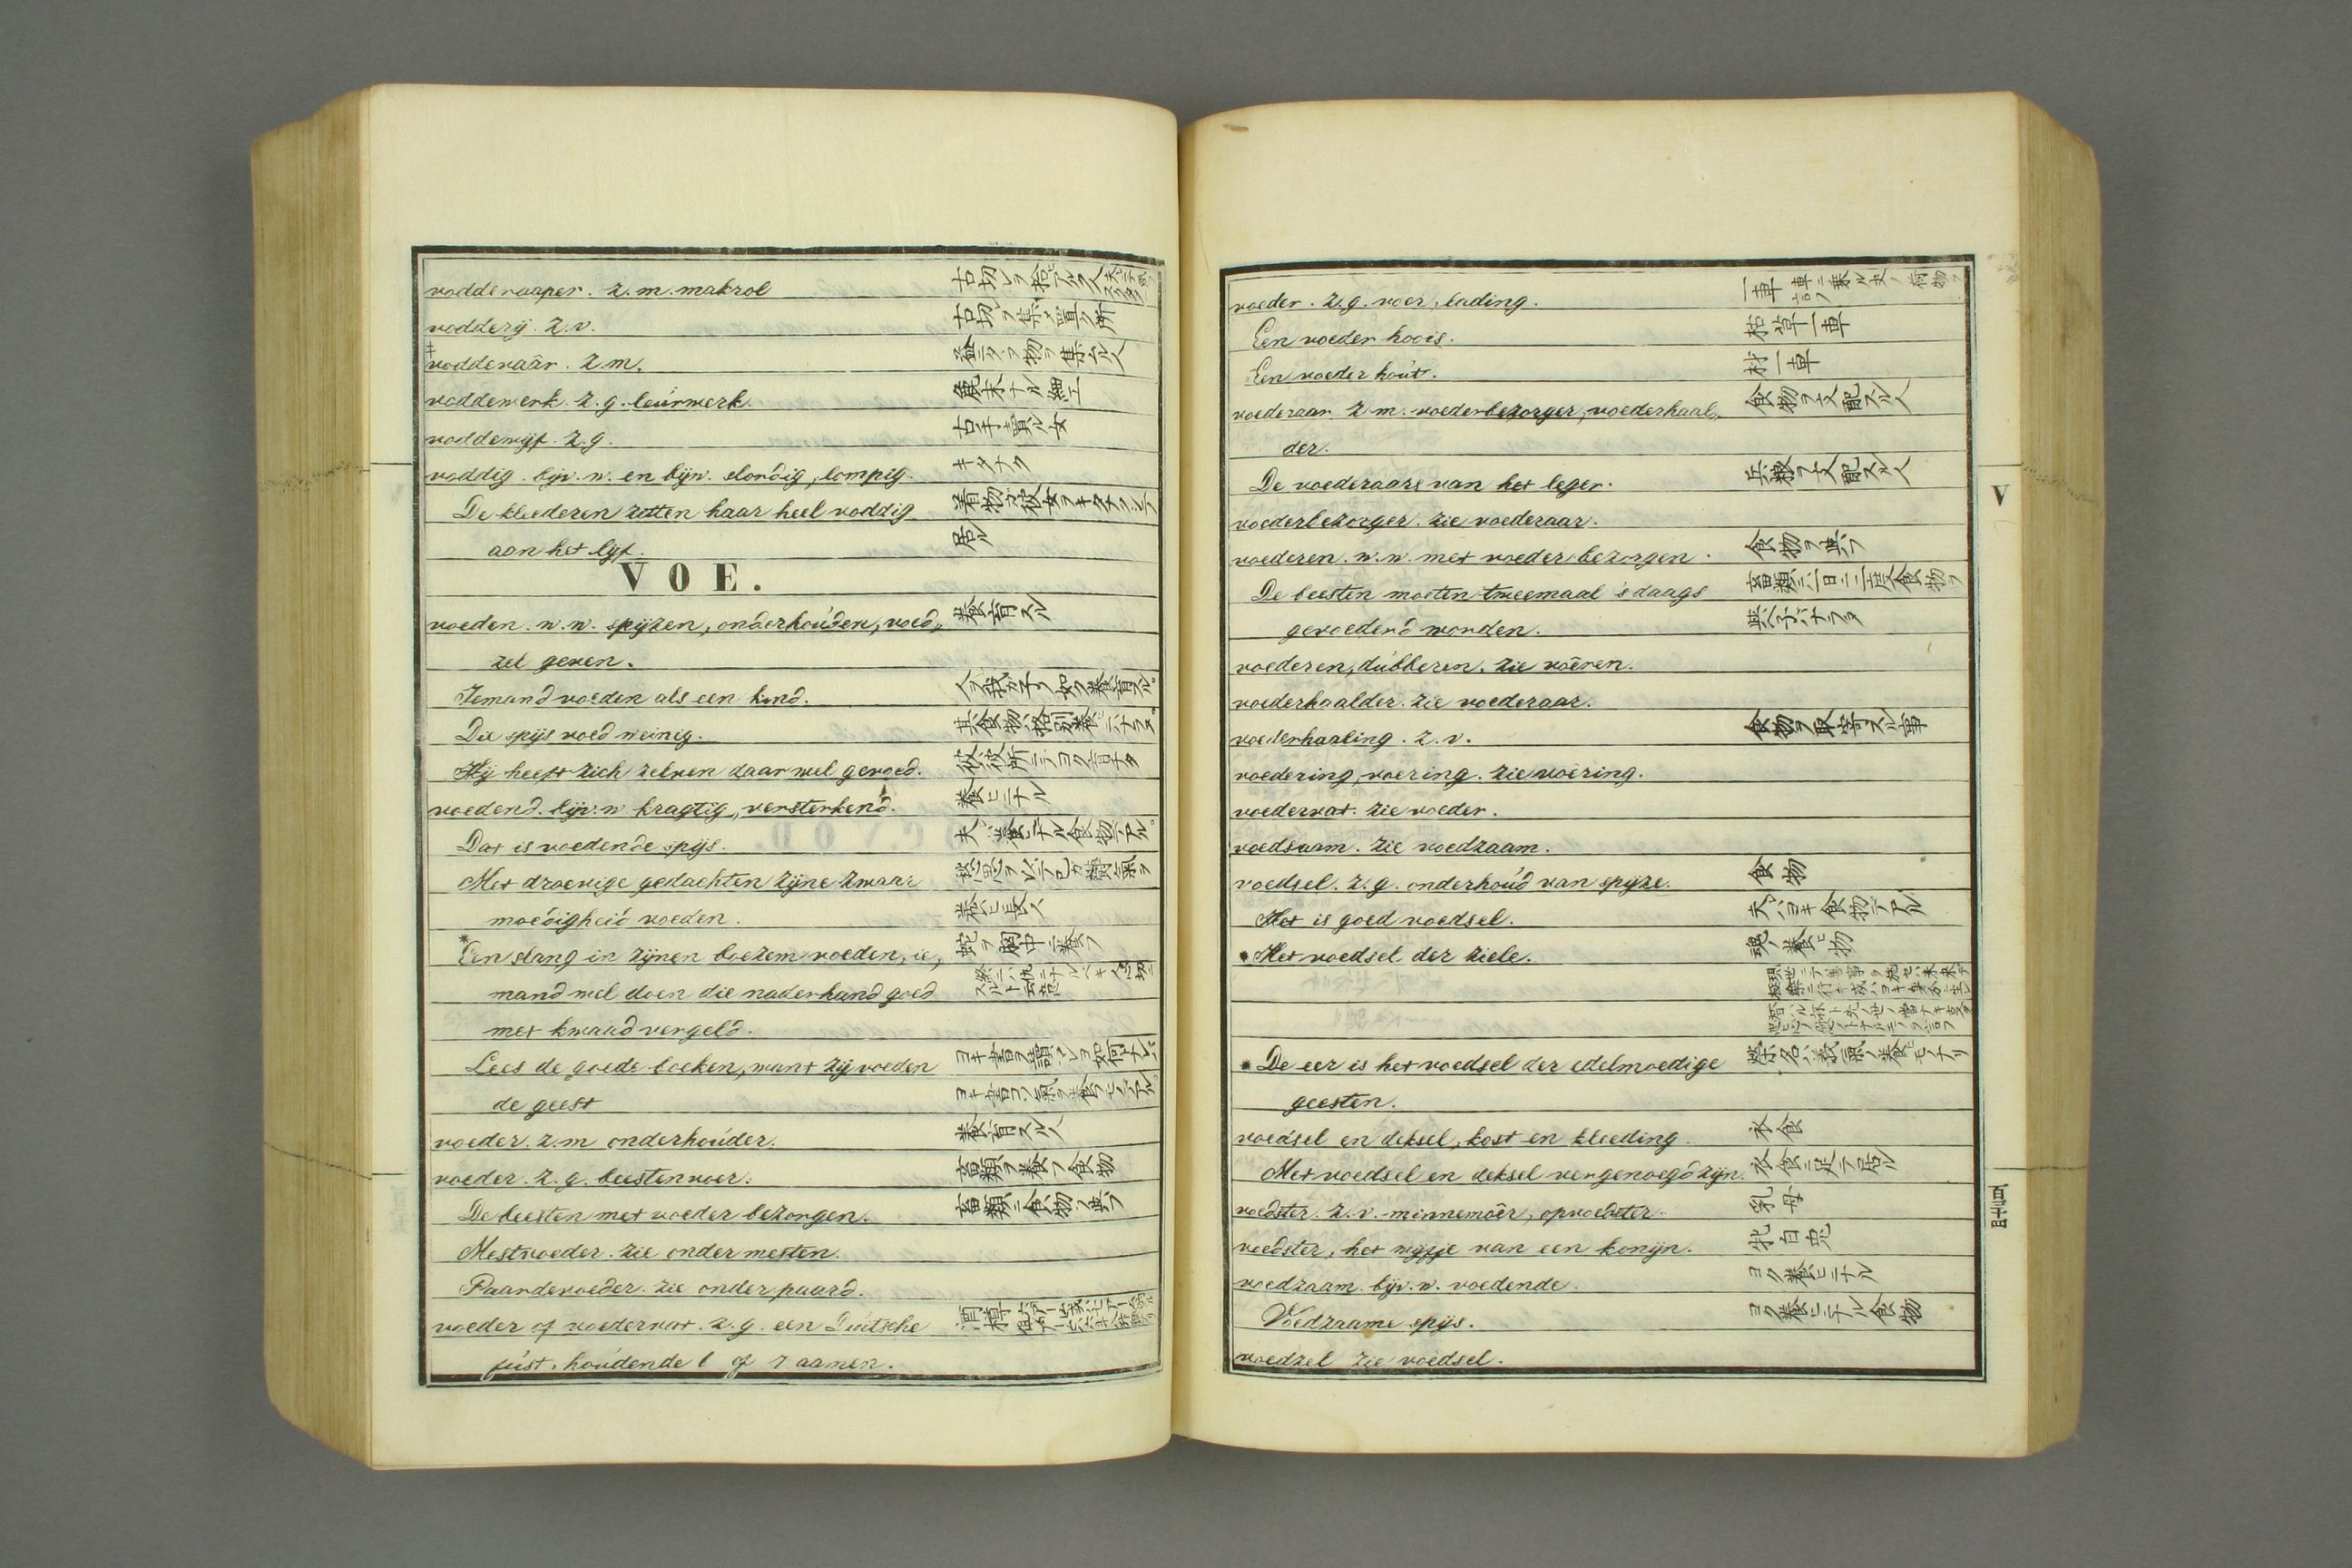 vodderaaper. z. m. makrol 古切レヲ拾ヒアルク人
vodderij. z. v. 古切ヲ集メ置ク所
voddevaâr. z. m. 物ヲ集ムル人
voddewerk. z. g. leurwerk. 麁末ナル細工
voddewijf. z. g. 古手賣ル女
voddig. bijv. n. en bijw. slordig, lompig. キタナク
De kleederen zitten haar heel voddig 着物ガ彼女ヲキタナクシテ
aan het lijf. 居ル
VOE.
voeden. w. w. spijzen, onderhoúden, voed„ 養育スル
zel geven.
Iemand voeden als een kind. 人ヲ我ガ子ノ如ク養育スル
Die spijs voed weinig. 其食物ハ格別養ヒニナラヌ
Hij heeft zich zelven daar wel gevoed. 彼ハ彼所ニテヨク育チタ
voedend. bijv. n kragtig, versterkend. 養ヒニナル
Dat is voedende spijs. 夫ハ養ヒニナル食物テアル
Met droevige gedachten zijne zwaar
moedigheid voeden. 養ヒ長ス
*Een slang in zijnen boezem voeden, ie, 蛇ヲ胸中ニ養フ
mand wel doen die naderhand goed
met kwaad vergeld.
Lees de goede boeken, want zij voeden ヨキ書ヲ讀メ
de geest ヨキ書ハ氣ヲ養フ
voeder. z. m onderhoúder. 養育スル人
voeder. z. g. beestenvoer. 畜類ヲ養フ食物
De beesten met voeder bezorgen. 畜類ニ食物ヲ與フ
Mestvoeder. zie onder mesten.
Paardevoeder. zie onder paard.
voeder of voedervat. z. g. een Duitsche 酒樽
fúst. hoúdende 6 of 7 aamen.
voeder. z. g. voer, lading. 一車 車ニ乗ル丈ノ荷物ヲ言フ
Een voeder hoois. 枯草一車
Een voeder hoút. 材一車
voederaar z m. voederbezorger, voederhaal„ 食物ヲ支配スル人
der.
De voederaars van het leger. 兵粮ヲ支配スル人
voederbezorger. zie voederaar.
voederen. w. w. met voeder bezorgen. 食物ヲ與フ
De beesten moeten tweemaal 's daags 畜類ニハ一日ニ二度食物ヲ
gevoederd worden. 與ヘ子バナラヌ
voederen, dúbberen. zie voêren.
voederhaalder. zie voederaar.
voederhaaling. z. v. 食物ヲ取寄スル事
voedering, voering. zie voering.
voedervat. zie voeder.
voedsaam. zie voedzaam.
voedsel. z. g. onderhoúd van spijze. 食物
Het is goed voedsel. 夫ハヨキ食物テアル
*Het voedsel der ziele. 魂ノ養ヒ物
*De eer is het voedsel der edelmoedige 榮名ハ義氣ノ養ヒモノナリ
geesten.
voedsel en deksel, kost en kleeding. 衣食
Met voedsel en deksel vergenoegd zijn. 衣食ニ足テ居ル
voedster. z. v. minnemoêr, opvoedster. 乳母
voedster, het wijfje van een konijn. 牝白兎
voedzaam. bijv. n. voedende. ヨク養ヒニナル
Voedzaame spijs. ヨク養ヒニナル食物
voedzel zie voedsel.
V